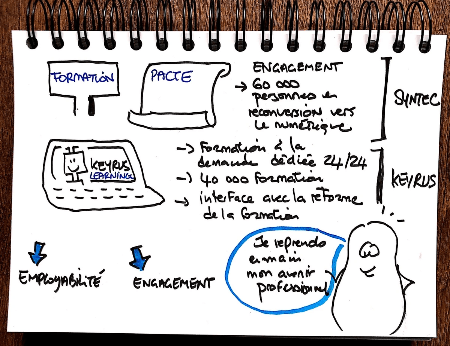 FORMATION
PACTE
ENGAGEMENT
→ 60 000
personnes en
reconversion vers
le numérique
SYNTEC
KEYRUS
LEARNING
→ Formation à la
demande dédiée 24/24
→ 40 000 formation
→ interface avec la réforme
de la formation
KEYRUS
EMPLOYABILITÉ
ENGAGEMENT
Je reprends
en main
mon avenir
professionnel